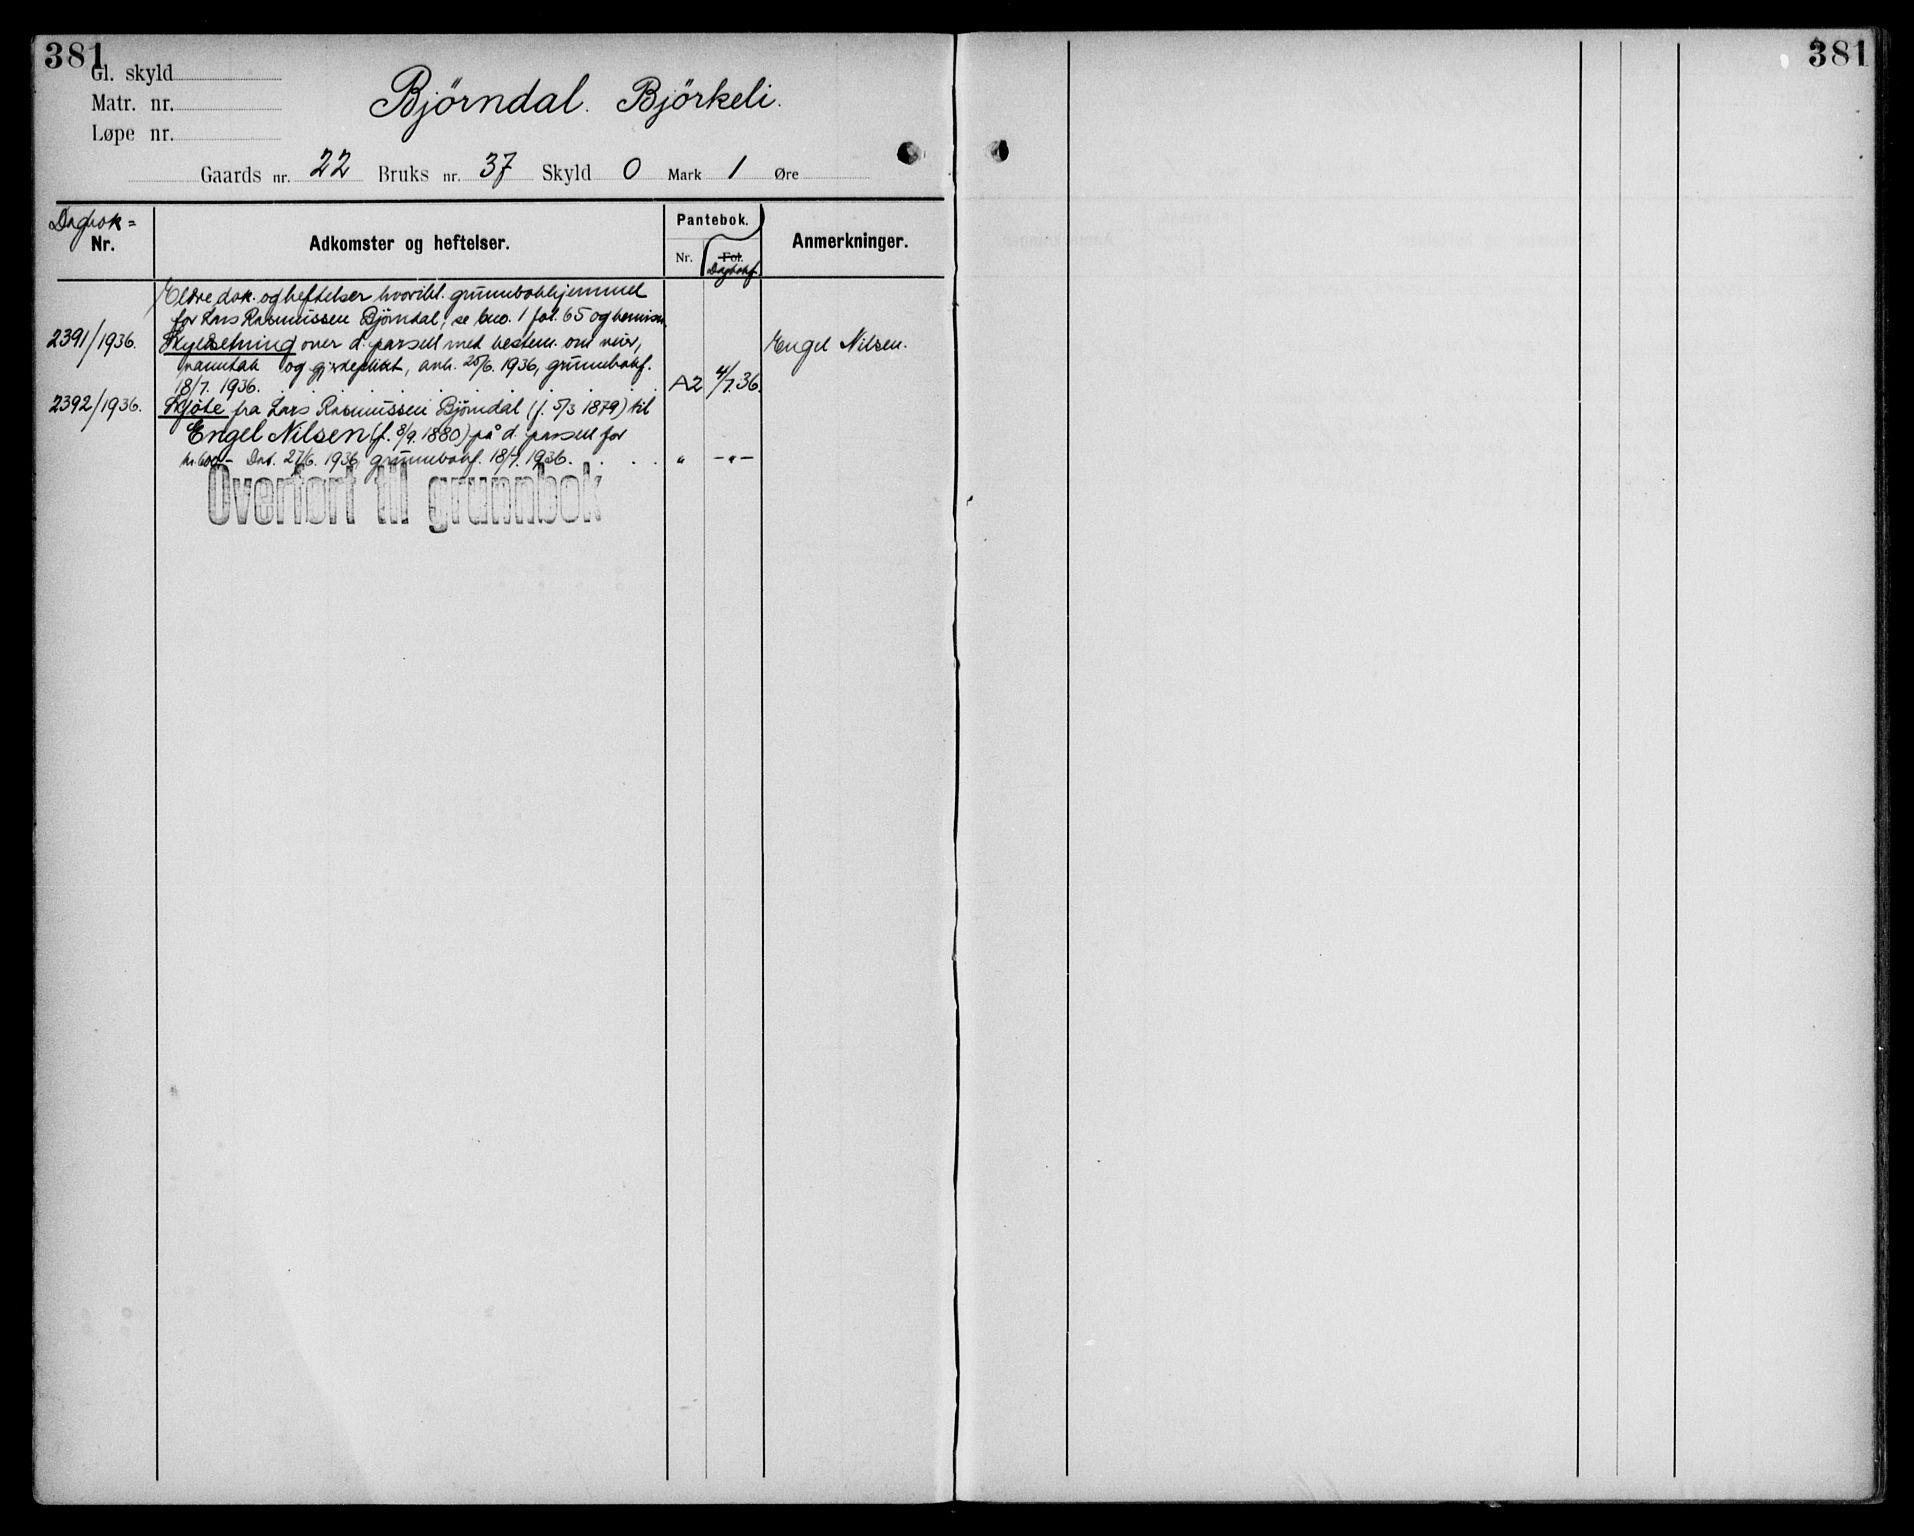 381
381
Gl. skyld
Matr. nr.
Løpe nr.
Bjørndal. Bjørkeli.
Gaards nr. 22 Bruks nr. 37 Skyld 0 Mark 1 Øre
Dagbok=
Nr.
Adkomster og heftelser.
Pantebok.
Nr.
Fol.
Dagbokf.
Anmerkninger.
Eldre dok. og heftelser hvoribl. grunnbokhjemmel
for Lars Rasmussen Bjørndal, se bno. 1 fol. 65 og henvisn.
2391/1936. Skyldsetning over d. parsell med bestem. om veier, Engel Nilsen.
vanntak og gjerdeplikt, avh. 25/6. 1936, grunnbokf.
18/7. 1936. A2 4/7.36.
2392/1936. Skjøte fra Lars Rasmussen Bjørndal (f. 5/3 1879) til
Engel Nilsen (f. 8/9. 1880) på d. parsell for
kr. 600,- Dat. 27/6. 1936, grunnbokf. 18/7. 1936. " -"-
Overført til grunnbok